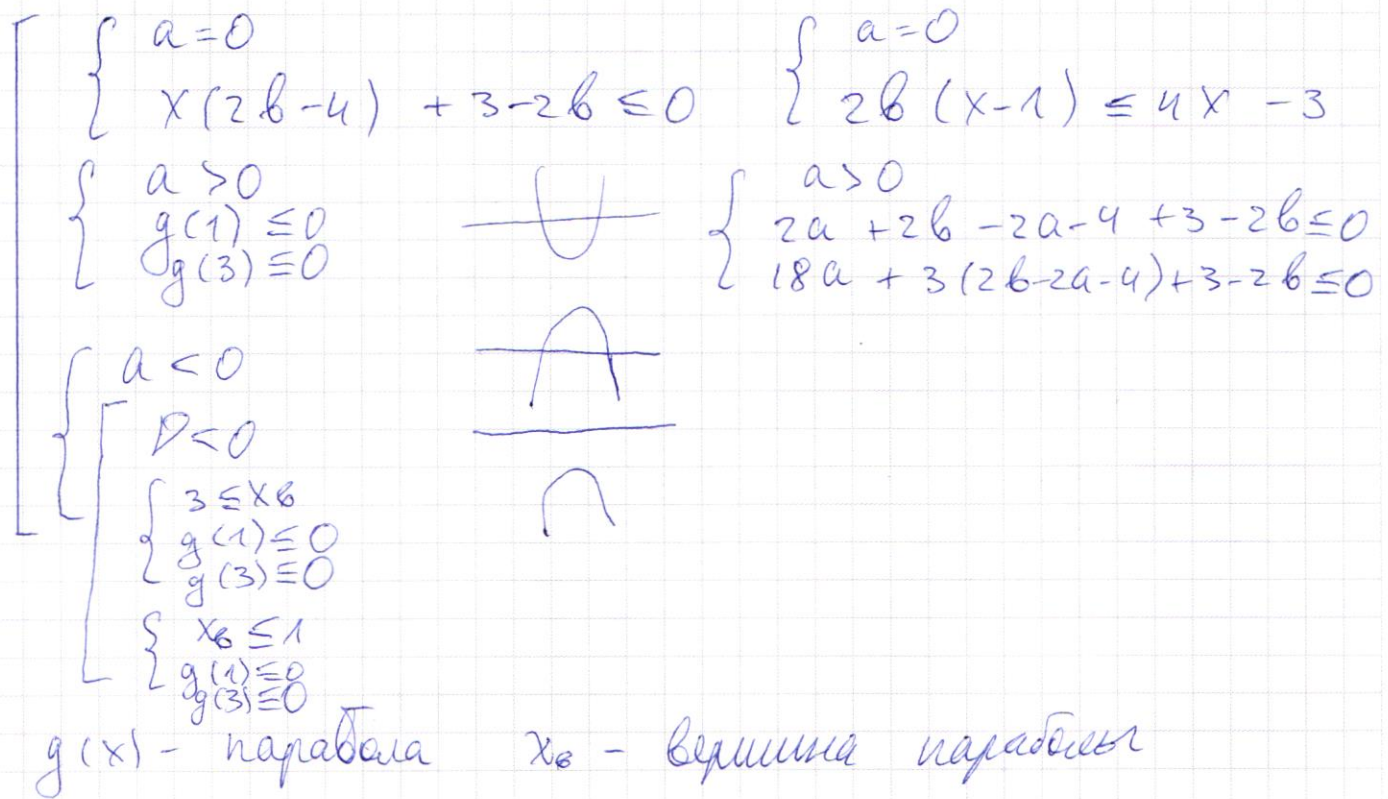 a = 0
x(2b-4) + 3-2b ≤ 0
a = 0
2b(x-1) ≤ 4x - 3
a > 0
g(1) ≤ 0
g(3) ≤ 0
a > 0
2a + 2b - 2a - 4 + 3 - 2b ≤ 0
18a + 3(2b-2a-4) + 3 - 2b ≤ 0
a < 0
D < 0
3 ≤ xв
g(1) ≤ 0
g(3) ≤ 0
xв ≤ 1
g(1) ≤ 0
g(3) ≤ 0
g(x) - парабола xв - вершина параболы